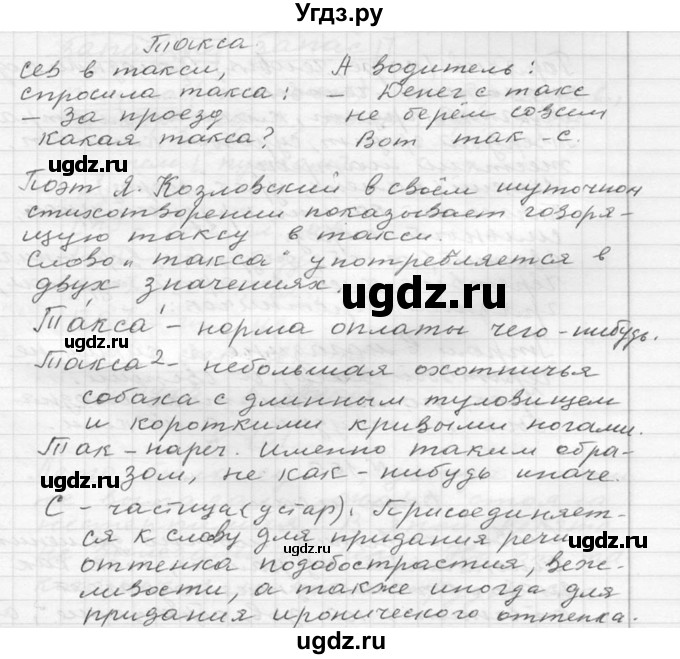 Угдз.ру
Такса
Сев в такси,
спросила такса:
– За проезд
Какая такса?
А водитель:
– Денег с такс
не берём совсем
Вот так-с.
Поэт Я. Козловский в своём шуточном
стихотворении показывает говоря-
щую таксу в такси.
Слово „такса“ употребляется в
двух значениях.
Та́кса¹ – норма оплаты чего-нибудь.
Такса² – небольшая охотничья
собака с длинным туловищем
и короткими кривыми ногами.
Так – нареч. Именно таким обра-
зом, не как-нибудь иначе.
С – частица (устар). Присоединяет-
ся к слову для придания речи
оттенка подобострастия, веж-
ливости, а также иногда для
придания иронического оттенка.
угдз.ру
угдз.ру
угдз.ру
угдз.ру
угдз.ру
угдз.ру
угдз.ру